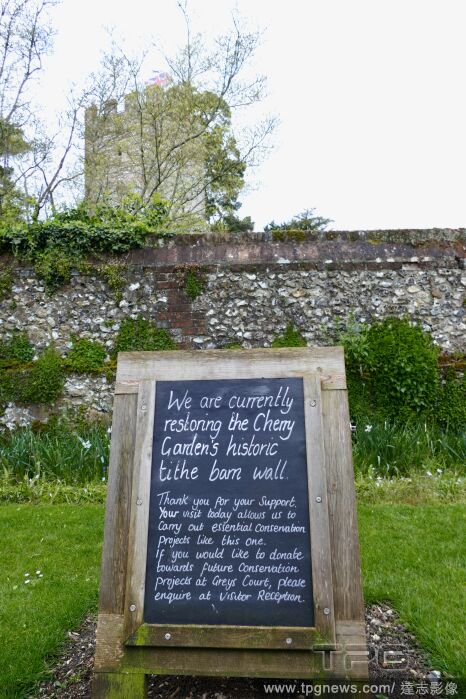 We are currently
restoring the Cherry
Garden's historic
tithe barn wall.
Thank you for your Support.
Your visit today allows us to
Carry out essential Conservation
projects like this one.
If you would like to donate
towards future Conservation
projects at Greys Court, please
enquire at Visitor Reception.
TPG
www.tpgnews.com/達志影像